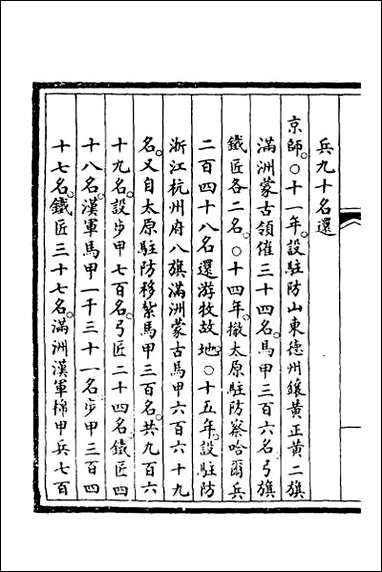 兵九十名還
京師○十一年設駐防山東德州鑲黃正黃二旗
滿洲蒙古領催三十四名馬甲三百六名弓旗
鐵匠各二名○十四年撤太原駐防察哈爾兵
二百四十八名還游牧故地○十五年設駐防
浙江杭州府八旗滿洲蒙古馬甲六百六十九
名又自太原駐防移紮馬甲三百名共九百六
十九名設步甲七百名弓匠二十四名鐵匠四
十八名漢軍馬甲一千三十一名步甲三百四
十七名鐵匠三十七名滿洲漢軍棉甲兵七百